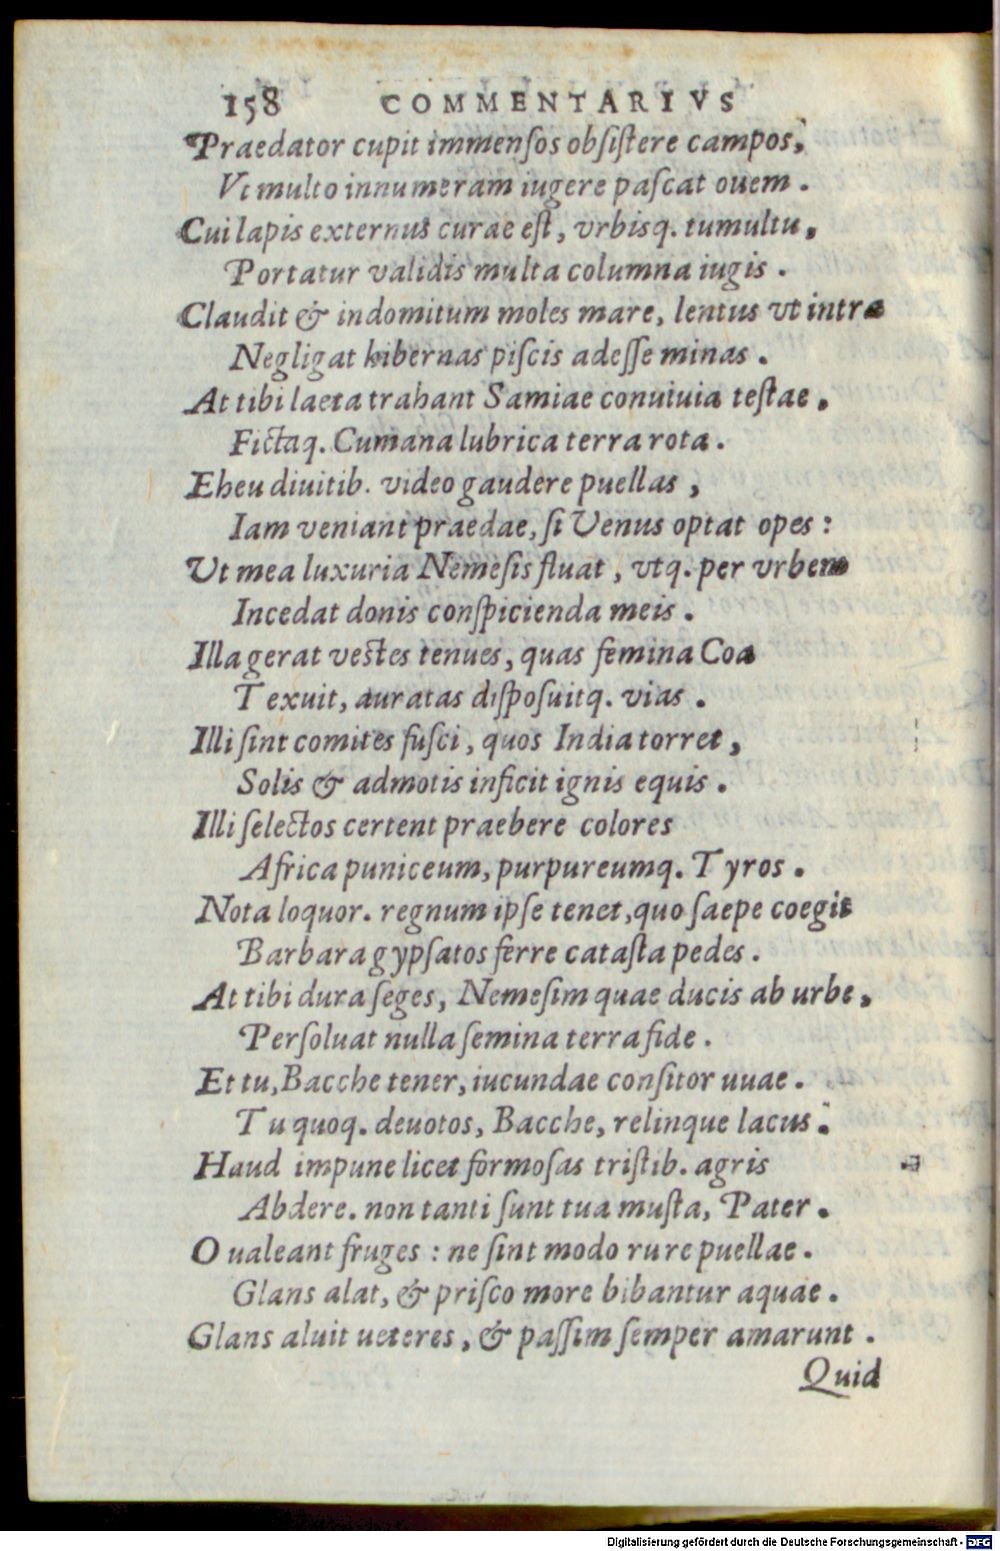 158 COMMENTARIVS
Praedator cupit immensos obsistere campos,
Vt multo innumeram iugere pascat ouem.
Cui lapis externus curae est, vrbisq. tumultu,
Portatur validis multa columna iugis.
Claudit & indomitum moles mare, lentus vt intra
Negligat hibernas piscis adesse minas.
At tibi laeta trahant Samiae conuiuia testae,
Fictaq. Cumana lubrica terra rota.
Eheu diuitib. video gaudere puellas,
Iam veniant praedae, si Venus optat opes:
Ut mea luxuria Nemesis fluat, vtq. per vrbem
Incedat donis conspicienda meis.
Illa gerat vestes tenues, quas femina Coa
Texuit, auratas disposuitq. vias.
Illi sint comites fusci, quos India torret,
Solis & admotis inficit ignis equis.
Illi selectos certent praebere colores
Africa puniceum, purpureumq. Tyros.
Nota loquor. regnum ipse tenet, quo saepe coegit
Barbara gypsatos ferre catasta pedes.
At tibi dura seges, Nemesim quae ducis ab urbe,
Persoluat nulla semina terra fide.
Et tu, Bacche tener, iucundae consitor uuae.
Tu quoq. deuotos, Bacche, relinque lacus.
Haud impune licet formosas tristib. agris
Abdere. non tanti sunt tua musta, Pater.
O ualeant fruges: ne sint modo rure puellae.
Glans alat, & prisco more bibantur aquae.
Glans aluit ueteres, & passim semper amarunt.
Quid
Digitalisierung gefördert durch die Deutsche Forschungsgemeinschaft - DFG